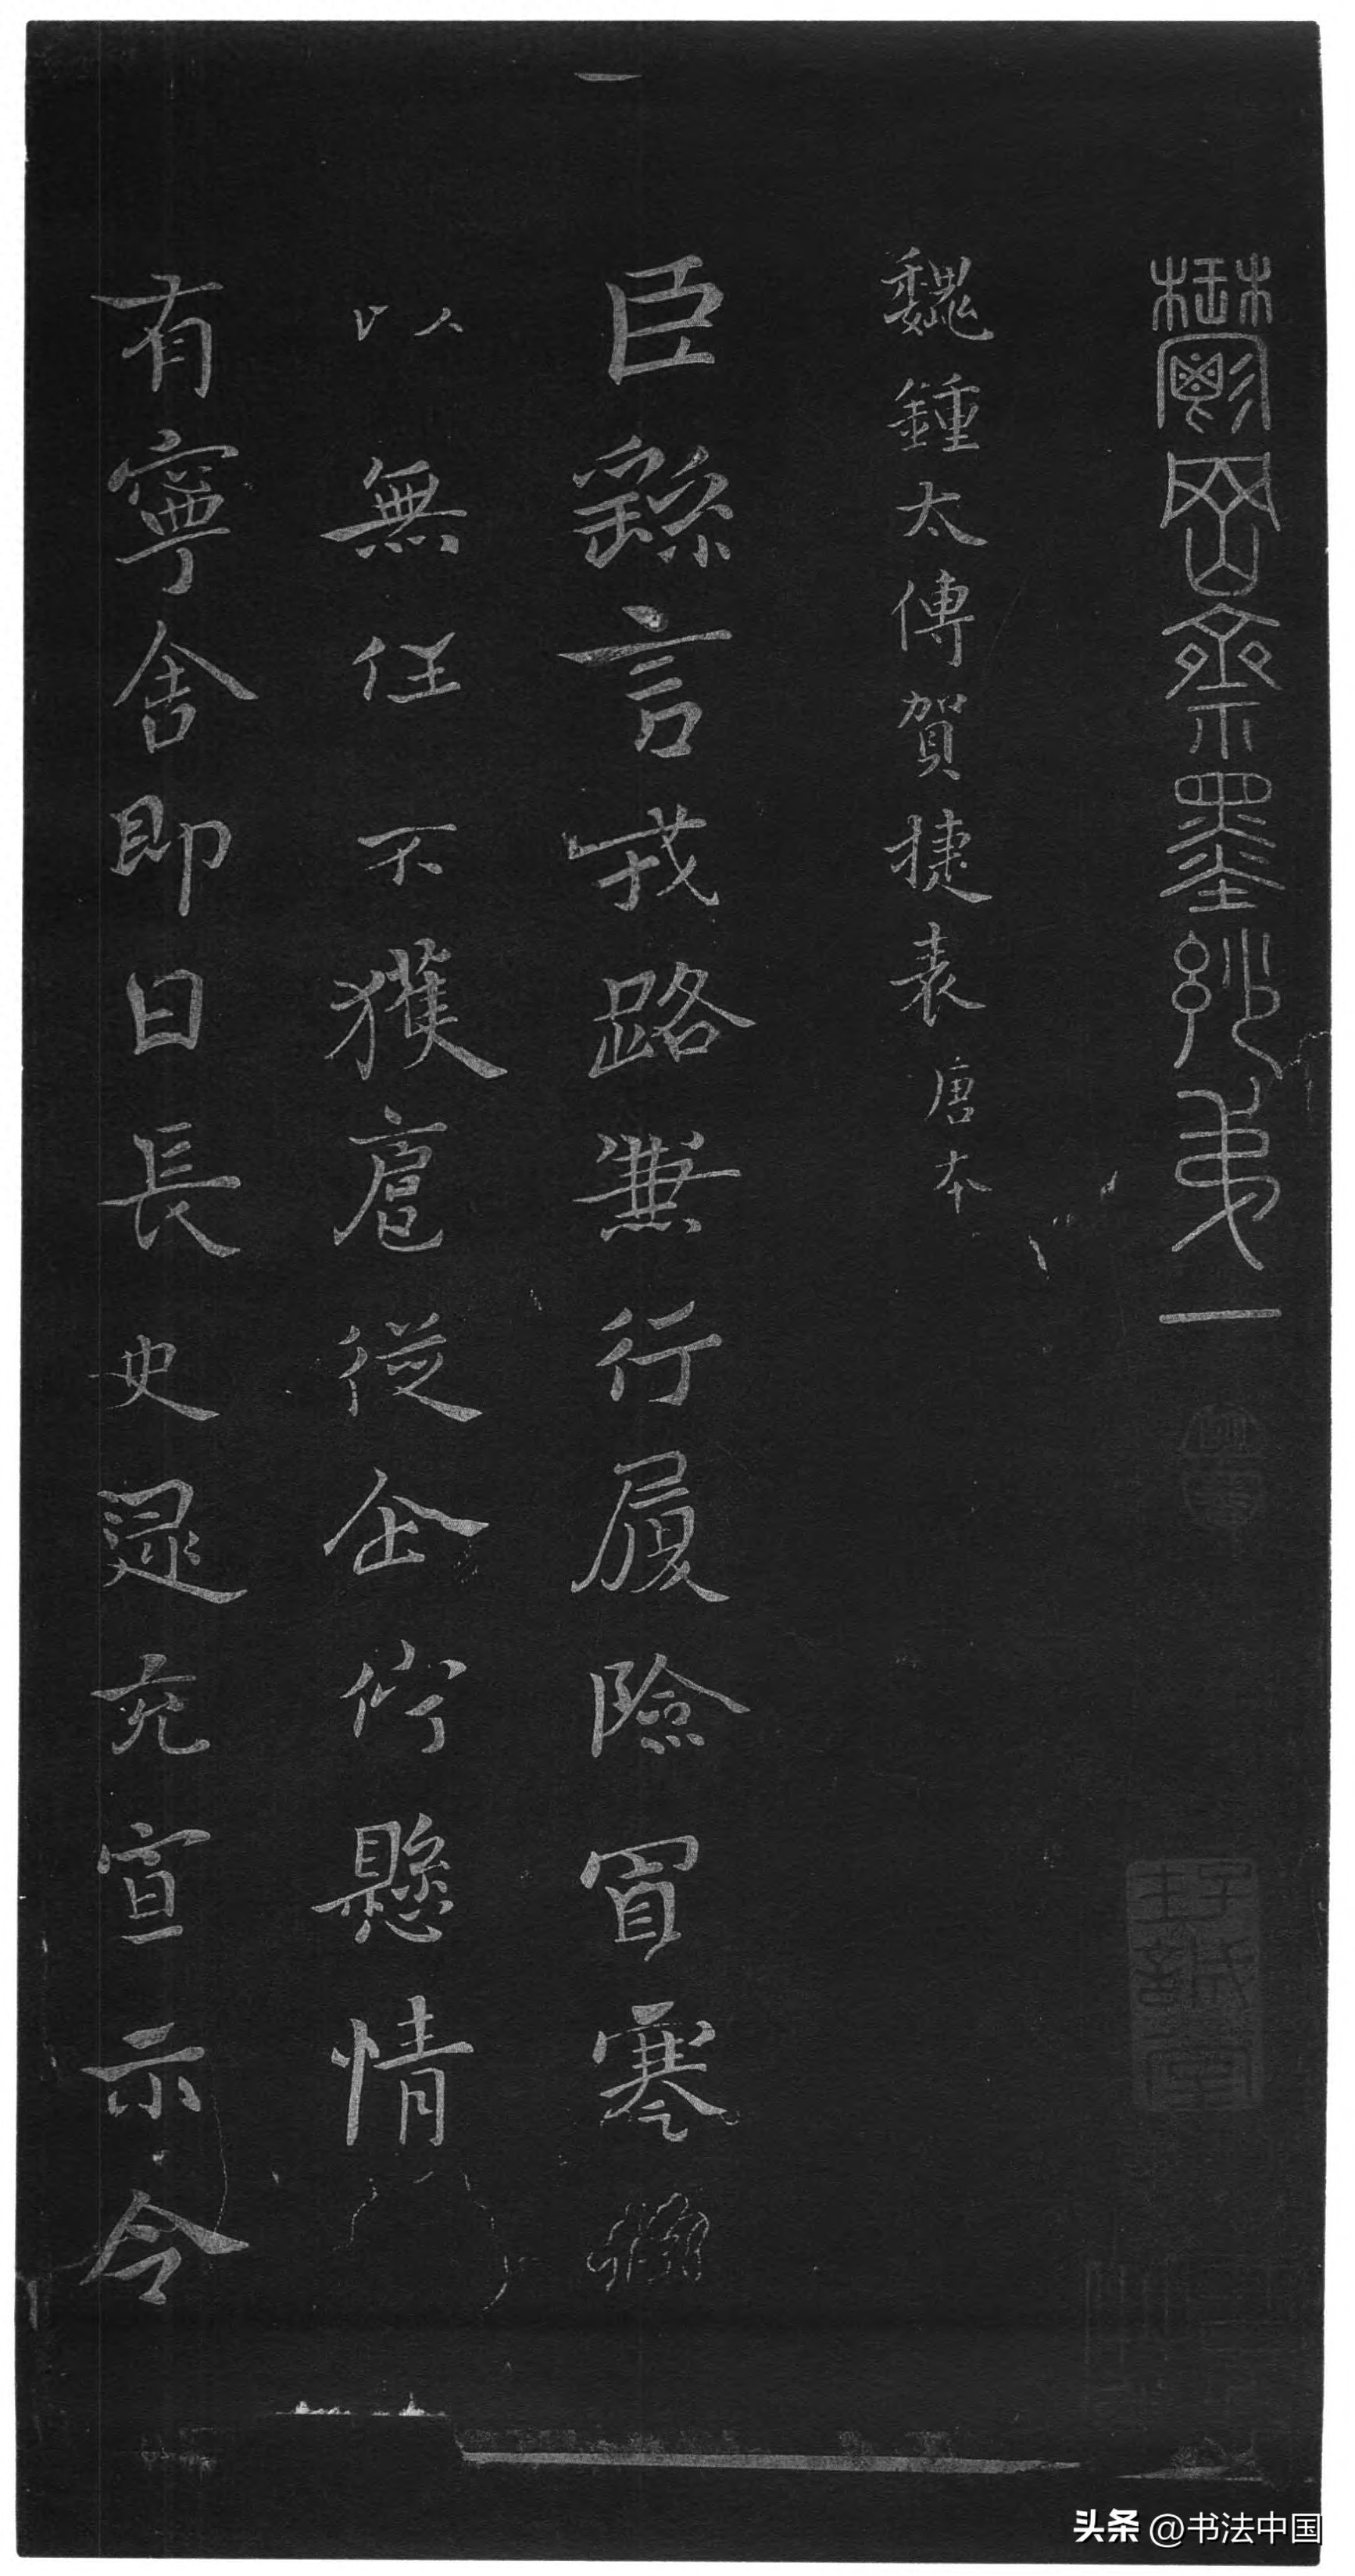 鬱岡齋墨妙弟一
魏鍾太傅賀捷表 唐本
一
臣繇言戎路兼行履險冒寒
以無任不獲扈從企佇懸情
有寧舍即日長史逯充宣示令
头条 @书法中国